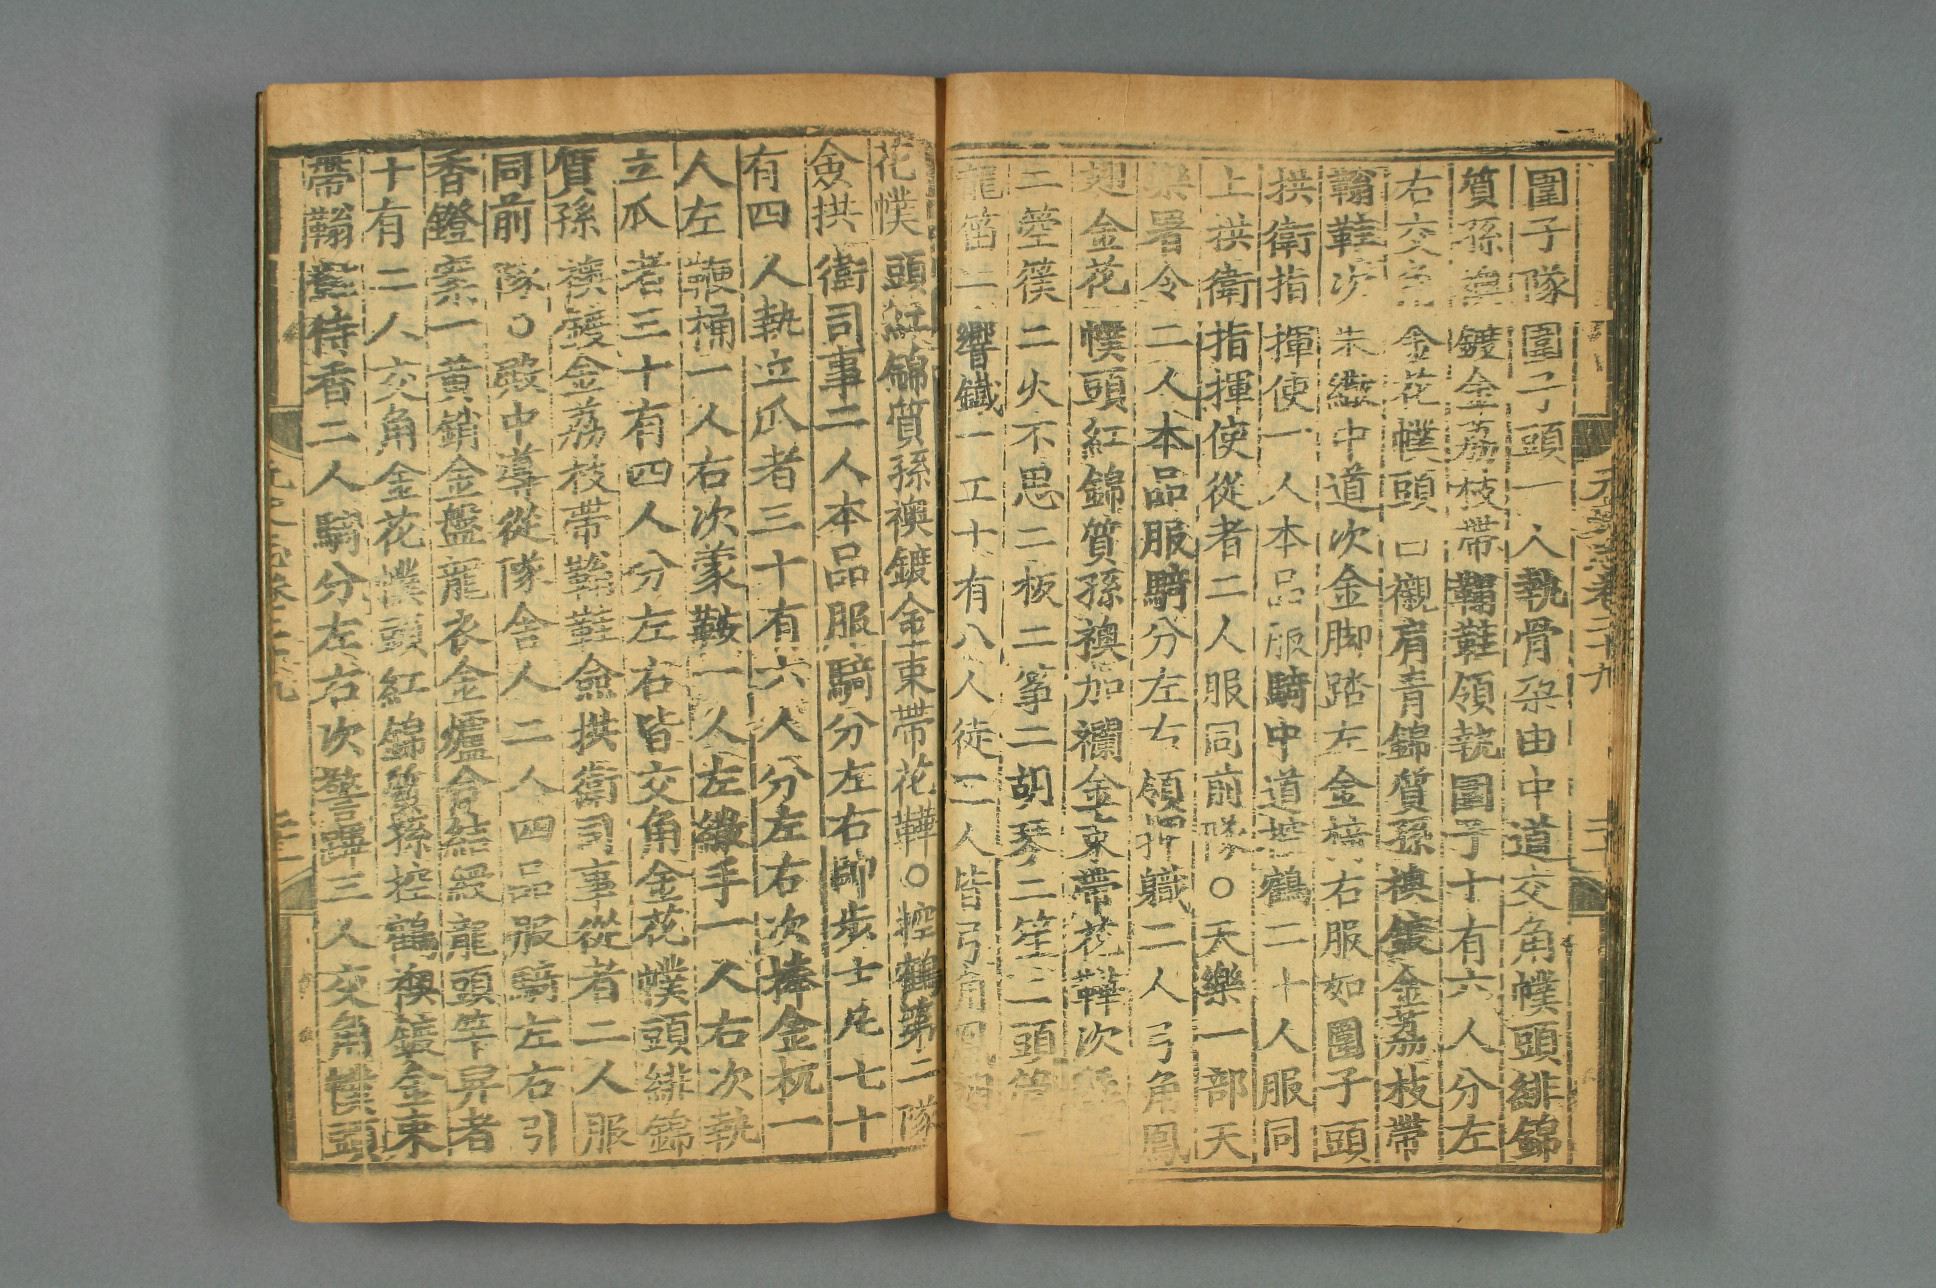 圍子隊圍子頭一人執骨朶由中道交角幞頭緋錦
質孫襖鍍金荔枝帶鞝鞋領執圍子十有六人分左
右交角金花幞頭白襯肩青錦質孫襖鍍金荔枝帶
鞝鞋次朱繖中道次金脚踏左金椅右服如圍子頭
拱衛指揮使一人本品服騎中道控鶴二十人服同
上拱衛指揮使從者二人服同前隊○天樂一部天
樂署令二人本品服騎分左右領押職二人弓角鳳
翅金花幞頭紅錦質孫襖加襴金束帶花鞾次
二箜篌二火不思二板二箏二胡琴二笙二頭管二
龍笛二響鐵一工十有八人徒二人皆弓角鳳翅
花幞頭紅錦質孫襖鍍金束帶花鞾○控鶴第二隊
僉拱衛司事二人本品服騎分左右帥步士凡七十
有四人執立瓜者三十有六人分左右次捧金杌一
人左鞭桶一人右次蒙鞍一人左繖手一人右次執
立瓜者三十有四人分左右皆交角金花幞頭緋錦
質孫襖鍍金荔枝帶鞝鞋僉拱衛司事從者二人服
同前隊○殿中導從隊舍人二人四品服騎左右引
香鐙案一黃銷金盤龍衣金爐合結綬龍頭竿舁者
十有二人交角金花幞頭紅錦質孫控鶴襖鍍金束
帶鞝鞋侍香二人騎分左右次警蹕三人交角幞頭